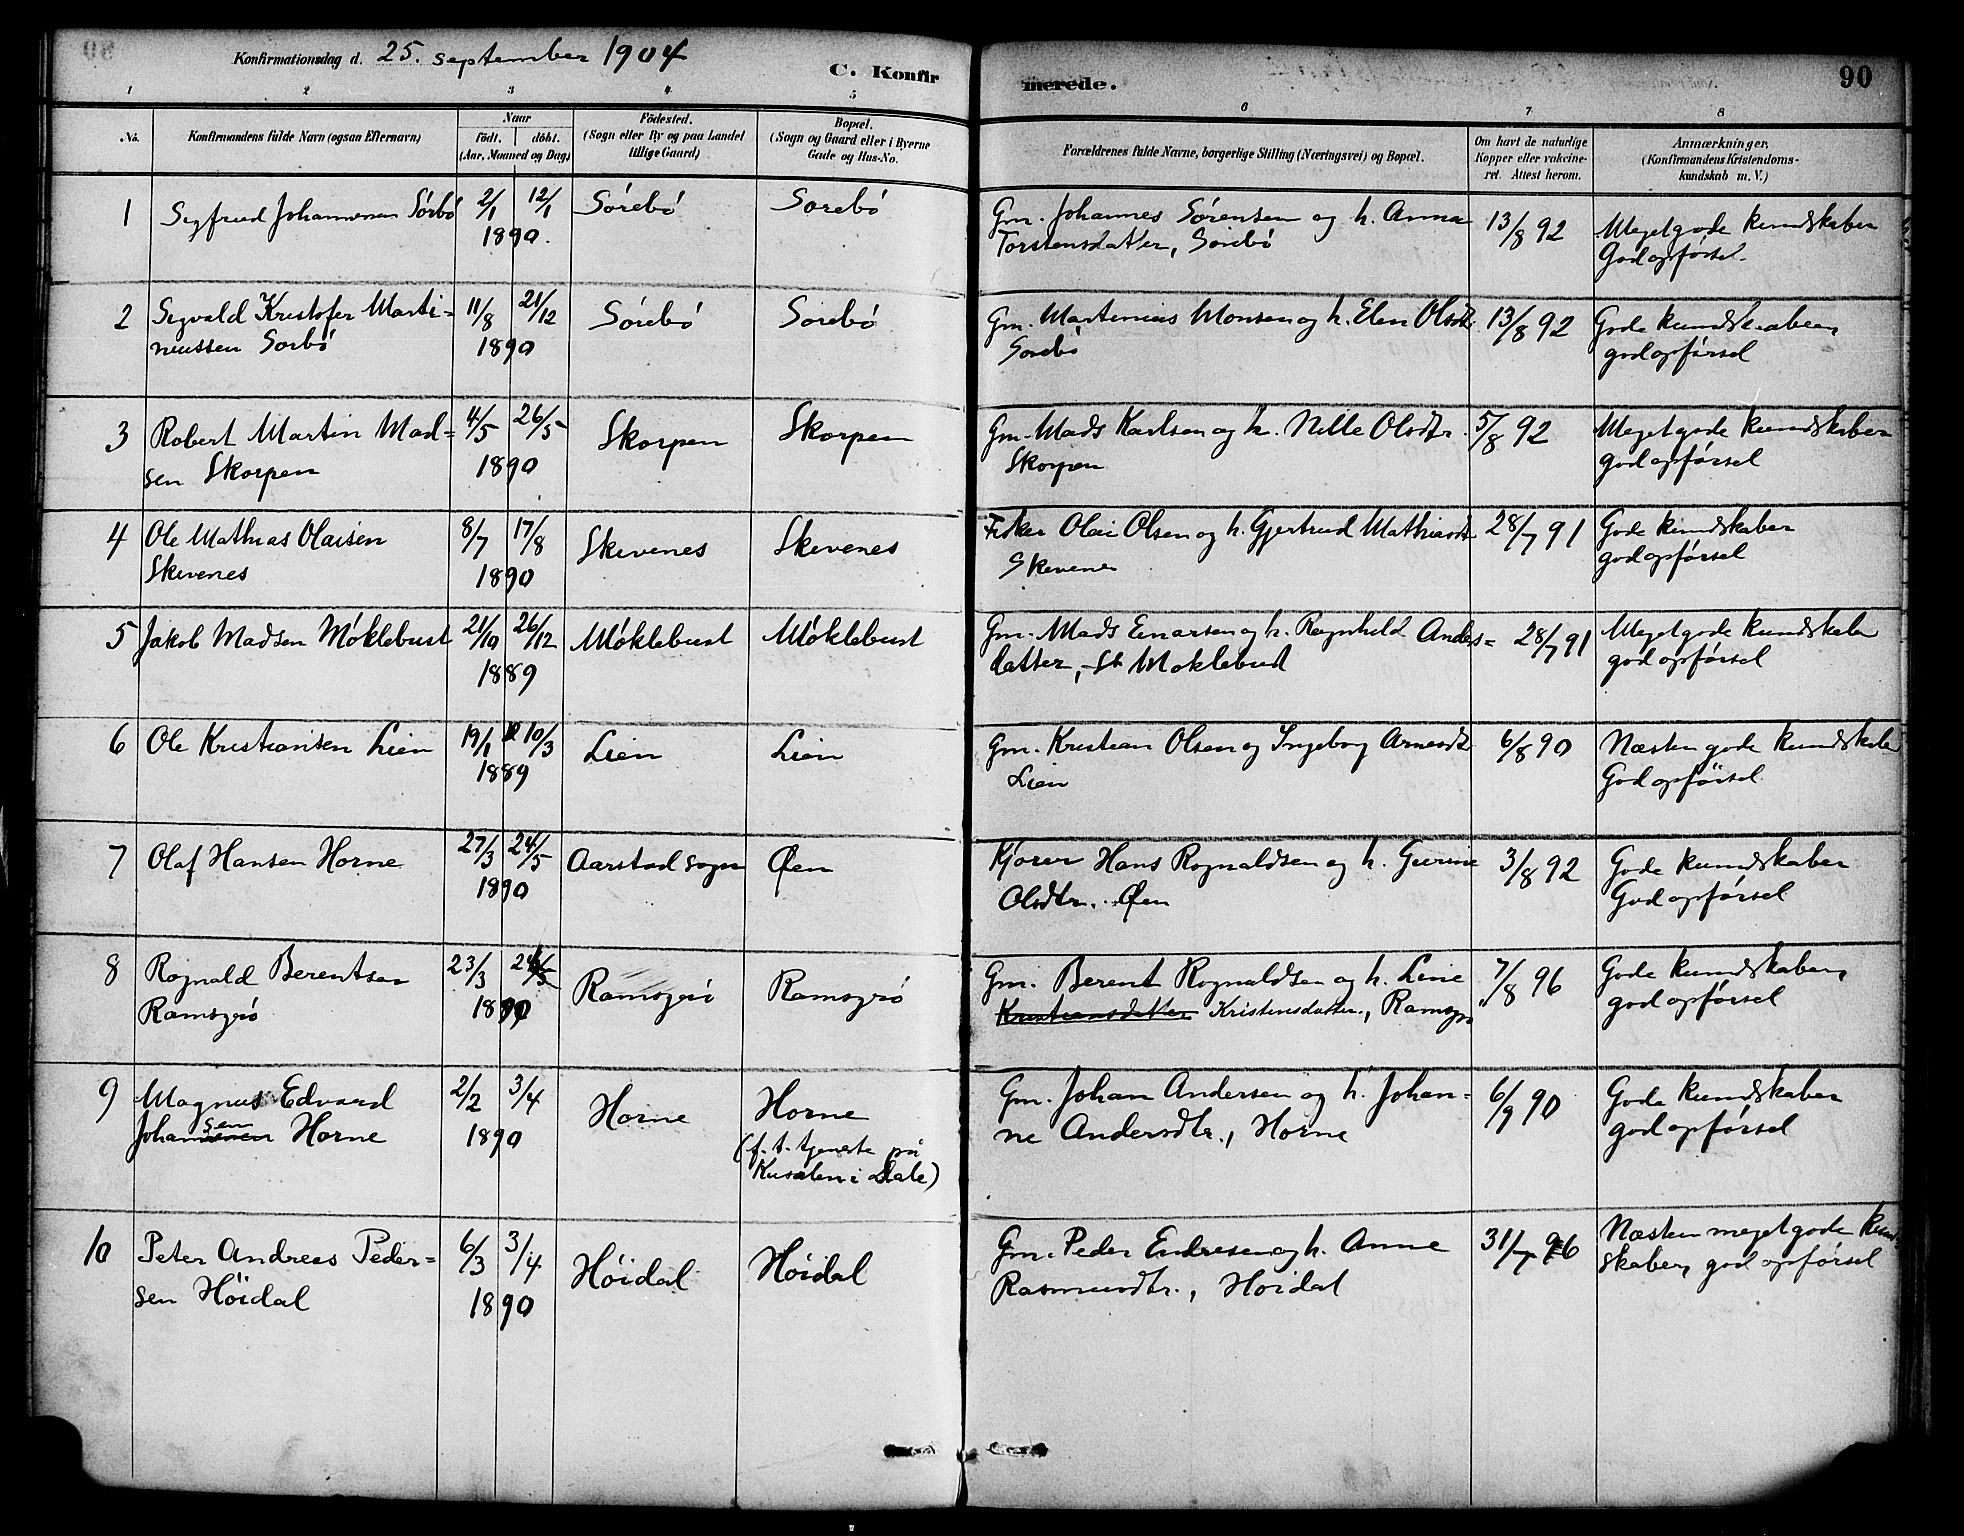 Konfirmationsdag d. 25. september 1904
C. Konfir
merede.
90
1 2 3 4 5 6 7 8
No.
Konfirmandens fulde Navn (ogsaa Efternavn)
Naar
födt. döbt.
(Aar, Maaned og Dag)
Födested.
(Sogn eller By og paa Landet
tillige Gaard)
Bopæl.
(Sogn og Gaard eller i Byerne
Gade og Hus-No.
Forældrenes fulde Navne, borgerlige Stilling (Næringsvei) og Bopæl.
Om havt de naturlige
Kopper eller vakcine-
ret. Attest herom.
Anmærkninger.
(Konfirmandens Kristendoms-
kundskab m. V.)
1 Sigfred Johannesen Sörbö 2/1 12/1 Sörebö Sorebö Gm. Johannes Sörensen og h. Anna 13/8 92 Megetgode kundskaber
1890. Torstensdatter, Sörebö God opförsel.
2 Sigvald Kristofer Marti- 11/8 21/12 Sörebö Sorebö Gm. Martinius Monsen og h. Elen Olsdt. 13/8 92 Gode kundskaber,
niussen Sorbö 1890 Sorebö god opförsel
3 Robert Martin Mad= 4/5 26/5 Skorpen Skorpen Gm. Mads Karlsen og h. Nille Olsdtr. 5/8 92 Megetgode kundskaber
sen Skorpen 1890 Skorpen god opförsel
4 Ole Mathias Olaisen 8/7 17/8 Skivenes Skivenes Fisker Olai Olsen og h. Gjertrud Mathiasdt. 28/7 91 Gode kundskaber
Skivenes 1890 Skivenes god opförsel
5 Jakob Madsen Möklebust 21/10 26/12 Möklebust Möklebust Gm. Mads Einarsen og h. Ragnhild Anders= 28/7 91 Megetgode kundskaber
1889 datter, St Moklebust god opförsel
6 Ole Kristiansen Lien 19/1 10/3 Lien Lien Gm. Kristian Olsen og Ingeborg Arnesdt. 6/8 90 Næsten gode kundskaber
1889 Lien God opförsel.
7 Olaf Hansen Horne 27/3 24/5 Aarstad sogn Øen Hans Rognaldsen og h. Gurine 3/8 92 Gode kundskaber
1890 Olsdtr. Øen God opförsel
8 Rognald Berentsen 23/3 Ramsgrö Ramsgrö Gm. Berent Rognaldsen og h. Line 7/8 96 Gode kundskaber,
Ramsgrö Kristiansdatter Kristensdatter, Ramsgrö god opförsel
9 Magnus Edvard 2/2 3/4 Horne Horne Gm. Johan Andersen og h. Johan- 6/9 90 Gode kundskaber
sen
Johannesen Horne 1890 (f. t. tjeneste på ne Andersdtr., Horne god opförsel
i Dale)
10 Peter Andreas Peder= 6/3 3/4 Höidal Höidal Gm. Peder Endresen og h. Anne 31/7 96 Næsten meget gode kund-
sen Höidal 1890 Rasmusdtr., Höidal skaber, god opförsel